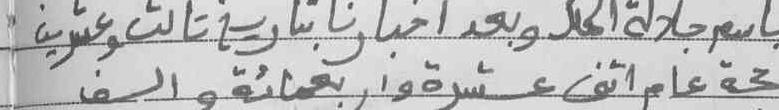 باسم جلالة الملك وبعد اخبارنا بتاريخ ثالث وعشرين
حجة عام اثنى عشرة واربعمائة والف